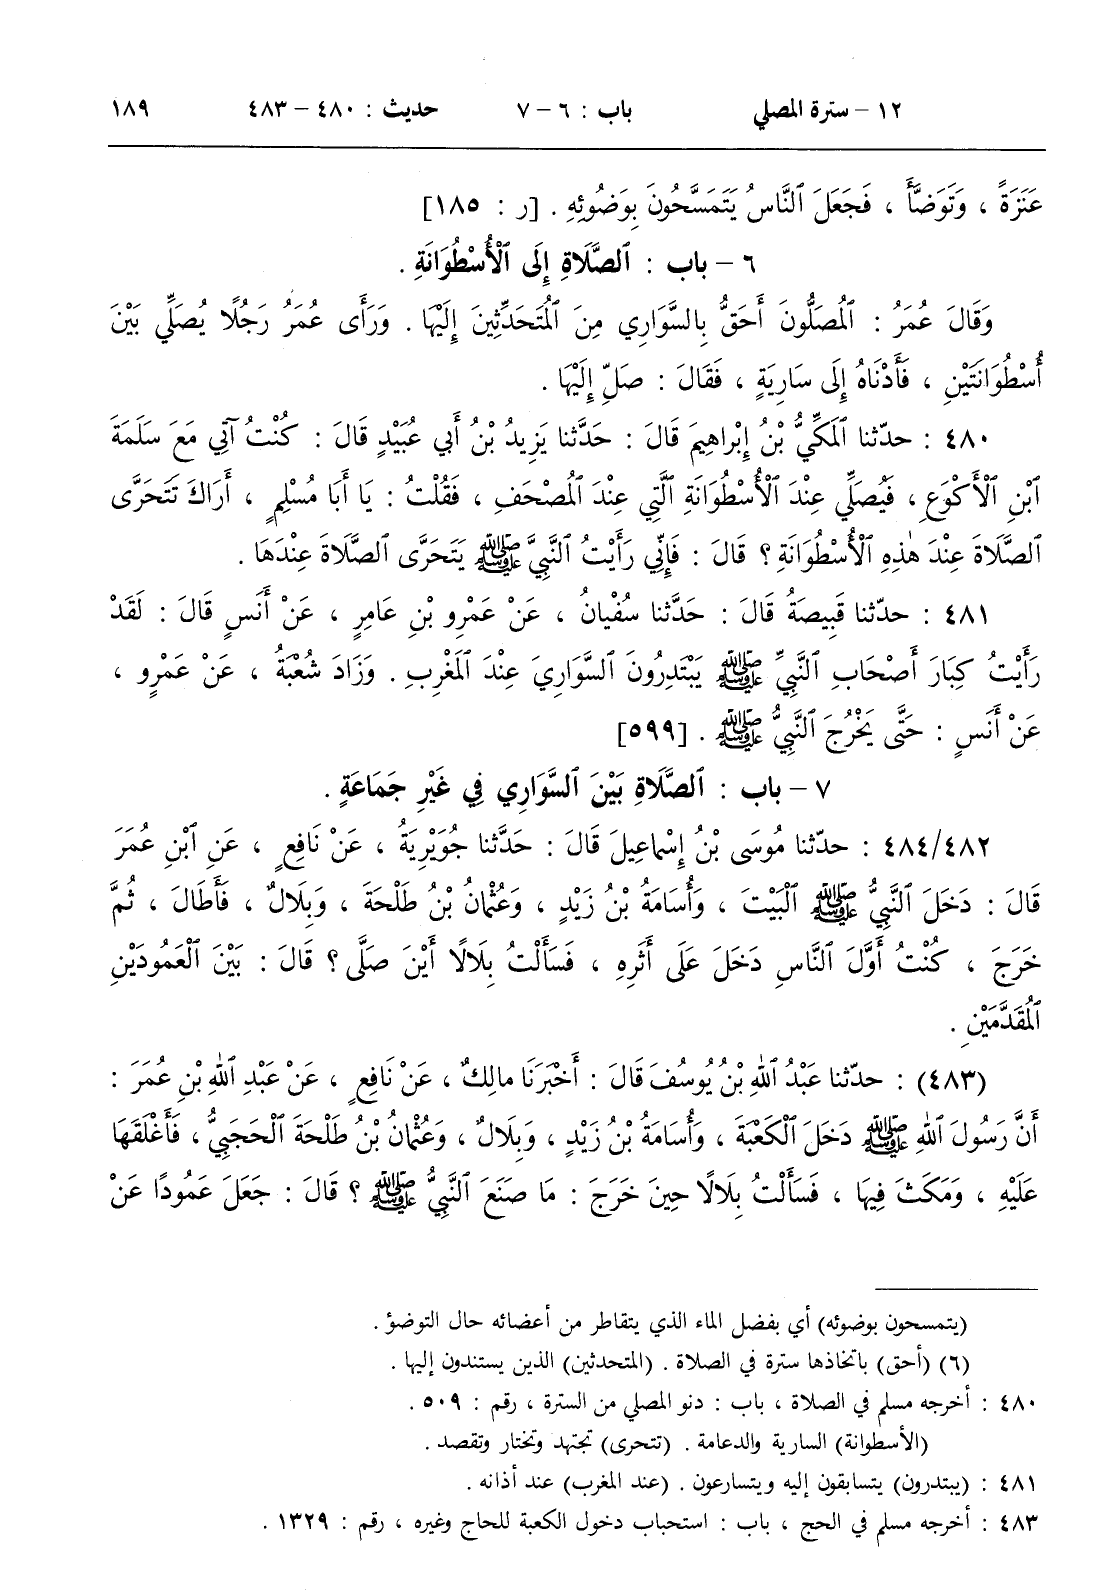 ١٢ - سترة المصلي باب : ٦ - ٧ حديث : ٤٨٠ - ٤٨٣ ١٨٩
عَنَزَةً ، وَتَوَضَّأَ ، فَجَعَلَ ٱلنَّاسُ يَتَمَسَّحُونَ بِوَضُوئِهِ . [ر : ١٨٥]
٦ - باب : ٱلصَّلَاةِ إِلَى ٱلْأُسْطُوَانَةِ .
وَقَالَ عُمَرُ : ٱلْمُصَلُّونَ أَحَقُّ بِالسَّوَارِي مِنَ ٱلْمُتَحَدِّثِينَ إِلَيْهَا . وَرَأَى عُمَرُ رَجُلًا يُصَلِّي بَيْنَ
أُسْطُوَانَتَيْنِ ، فَأَدْنَاهُ إِلَى سَارِيَةٍ ، فَقَالَ : صَلِّ إِلَيْهَا .
٤٨٠ : حدّثنا ٱلْمَكِّيُّ بْنُ إِبْراهِيمَ قَالَ : حَدَّثَنا يَزِيدُ بْنُ أَبِي عُبَيْدٍ قَالَ : كُنْتُ آتِي مَعَ سَلَمَةَ
ٱبْنِ ٱلْأَكْوَعِ ، فَيُصَلِّي عِنْدَ ٱلْأُسْطُوَانَةِ ٱلَّتِي عِنْدَ ٱلْمُصْحَفِ ، فَقُلْتُ : يَا أَبَا مُسْلِمٍ ، أَرَاكَ تَتَحَرَّى
ٱلصَّلَاةَ عِنْدَ هٰذِهِ ٱلْأُسْطُوَانَةِ ؟ قَالَ : فَإِنِّي رَأَيْتُ ٱلنَّبِيَّ ﷺ يَتَحَرَّى ٱلصَّلَاةَ عِنْدَهَا .
٤٨١ : حدّثنا قَبِيصَةُ قَالَ : حَدَّثَنا سُفْيانُ ، عَنْ عَمْرِو بْنِ عَامِرٍ ، عَنْ أَنَسٍ قَالَ : لَقَدْ
رَأَيْتُ كِبَارَ أَصْحَابِ ٱلنَّبِيِّ ﷺ يَبْتَدِرُونَ السَّوَارِيَ عِنْدَ ٱلْمَغْرِبِ . وَزَادَ شُعْبَةُ ، عَنْ عَمْرٍو ،
عَنْ أَنَسٍ : حَتَّى يَخْرُجَ ٱلنَّبِيُّ ﷺ . [٥٩٩]
٧ - باب : ٱلصَّلَاةِ بَيْنَ ٱلسَّوَارِي فِي غَيْرِ جَمَاعَةٍ .
٤٨٤/٤٨٢ : حدّثنا مُوسَى بْنُ إِسْماعِيلَ قَالَ : حَدَّثَنا جُوَيْرِيَةُ ، عَنْ نَافِعٍ ، عَنِ ٱبْنِ عُمَرَ
قَالَ : دَخَلَ ٱلنَّبِيُّ ﷺ ٱلْبَيْتَ ، وَأُسَامَةُ بْنُ زَيْدٍ ، وَعُثْمانُ بْنُ طَلْحَةَ ، وَبِلَالٌ ، فَأَطَالَ ، ثُمَّ
خَرَجَ ، كُنْتُ أَوَّلَ ٱلنَّاسِ دَخَلَ عَلَى أَثَرِهِ ، فَسَأَلْتُ بِلَالًا أَيْنَ صَلَّى ؟ قَالَ : بَيْنَ ٱلْعَمُودَيْنِ
ٱلْمُقَدَّمَيْنِ .
(٤٨٣) : حدّثنا عَبْدُ ٱللهِ بْنُ يُوسُفَ قَالَ : أَخْبَرَنَا مالِكٌ ، عَنْ نَافِعٍ ، عَنْ عَبْدِ ٱللهِ بْنِ عُمَرَ :
أَنَّ رَسُولَ ٱللهِ ﷺ دَخَلَ ٱلْكَعْبَةَ ، وَأُسَامَةُ بْنُ زَيْدٍ ، وَبِلَالٌ ، وَعُثْمانُ بْنُ طَلْحَةَ ٱلْحَجَبِيُّ ، فَأَغْلَقَهَا
عَلَيْهِ ، وَمَكَثَ فِيهَا ، فَسَأَلْتُ بِلَالًا حِينَ خَرَجَ : مَا صَنَعَ ٱلنَّبِيُّ ﷺ ؟ قَالَ : جَعَلَ عَمُودًا عَنْ
(يتمسحون بوضوئه) أي بفضل الماء الذي يتقاطر من أعضائه حال التوضؤ .
(٦) (أحق) باتخاذها سترة في الصلاة . (المتحدثين) الذين يستندون إليها .
٤٨٠ : أخرجه مسلم في الصلاة ، باب : دنو المصلي من السترة ، رقم : ٥٠٩ .
(الأسطوانة) السارية والدعامة . (تتحرى) تجتهد وتختار وتقصد .
٤٨١ : (يبتدرون) يتسابقون إليه ويتسارعون . (عند المغرب) عند أذانه .
٤٨٣ : أخرجه مسلم في الحج ، باب : استحباب دخول الكعبة للحاج وغيره ، رقم : ١٣٢٩ .